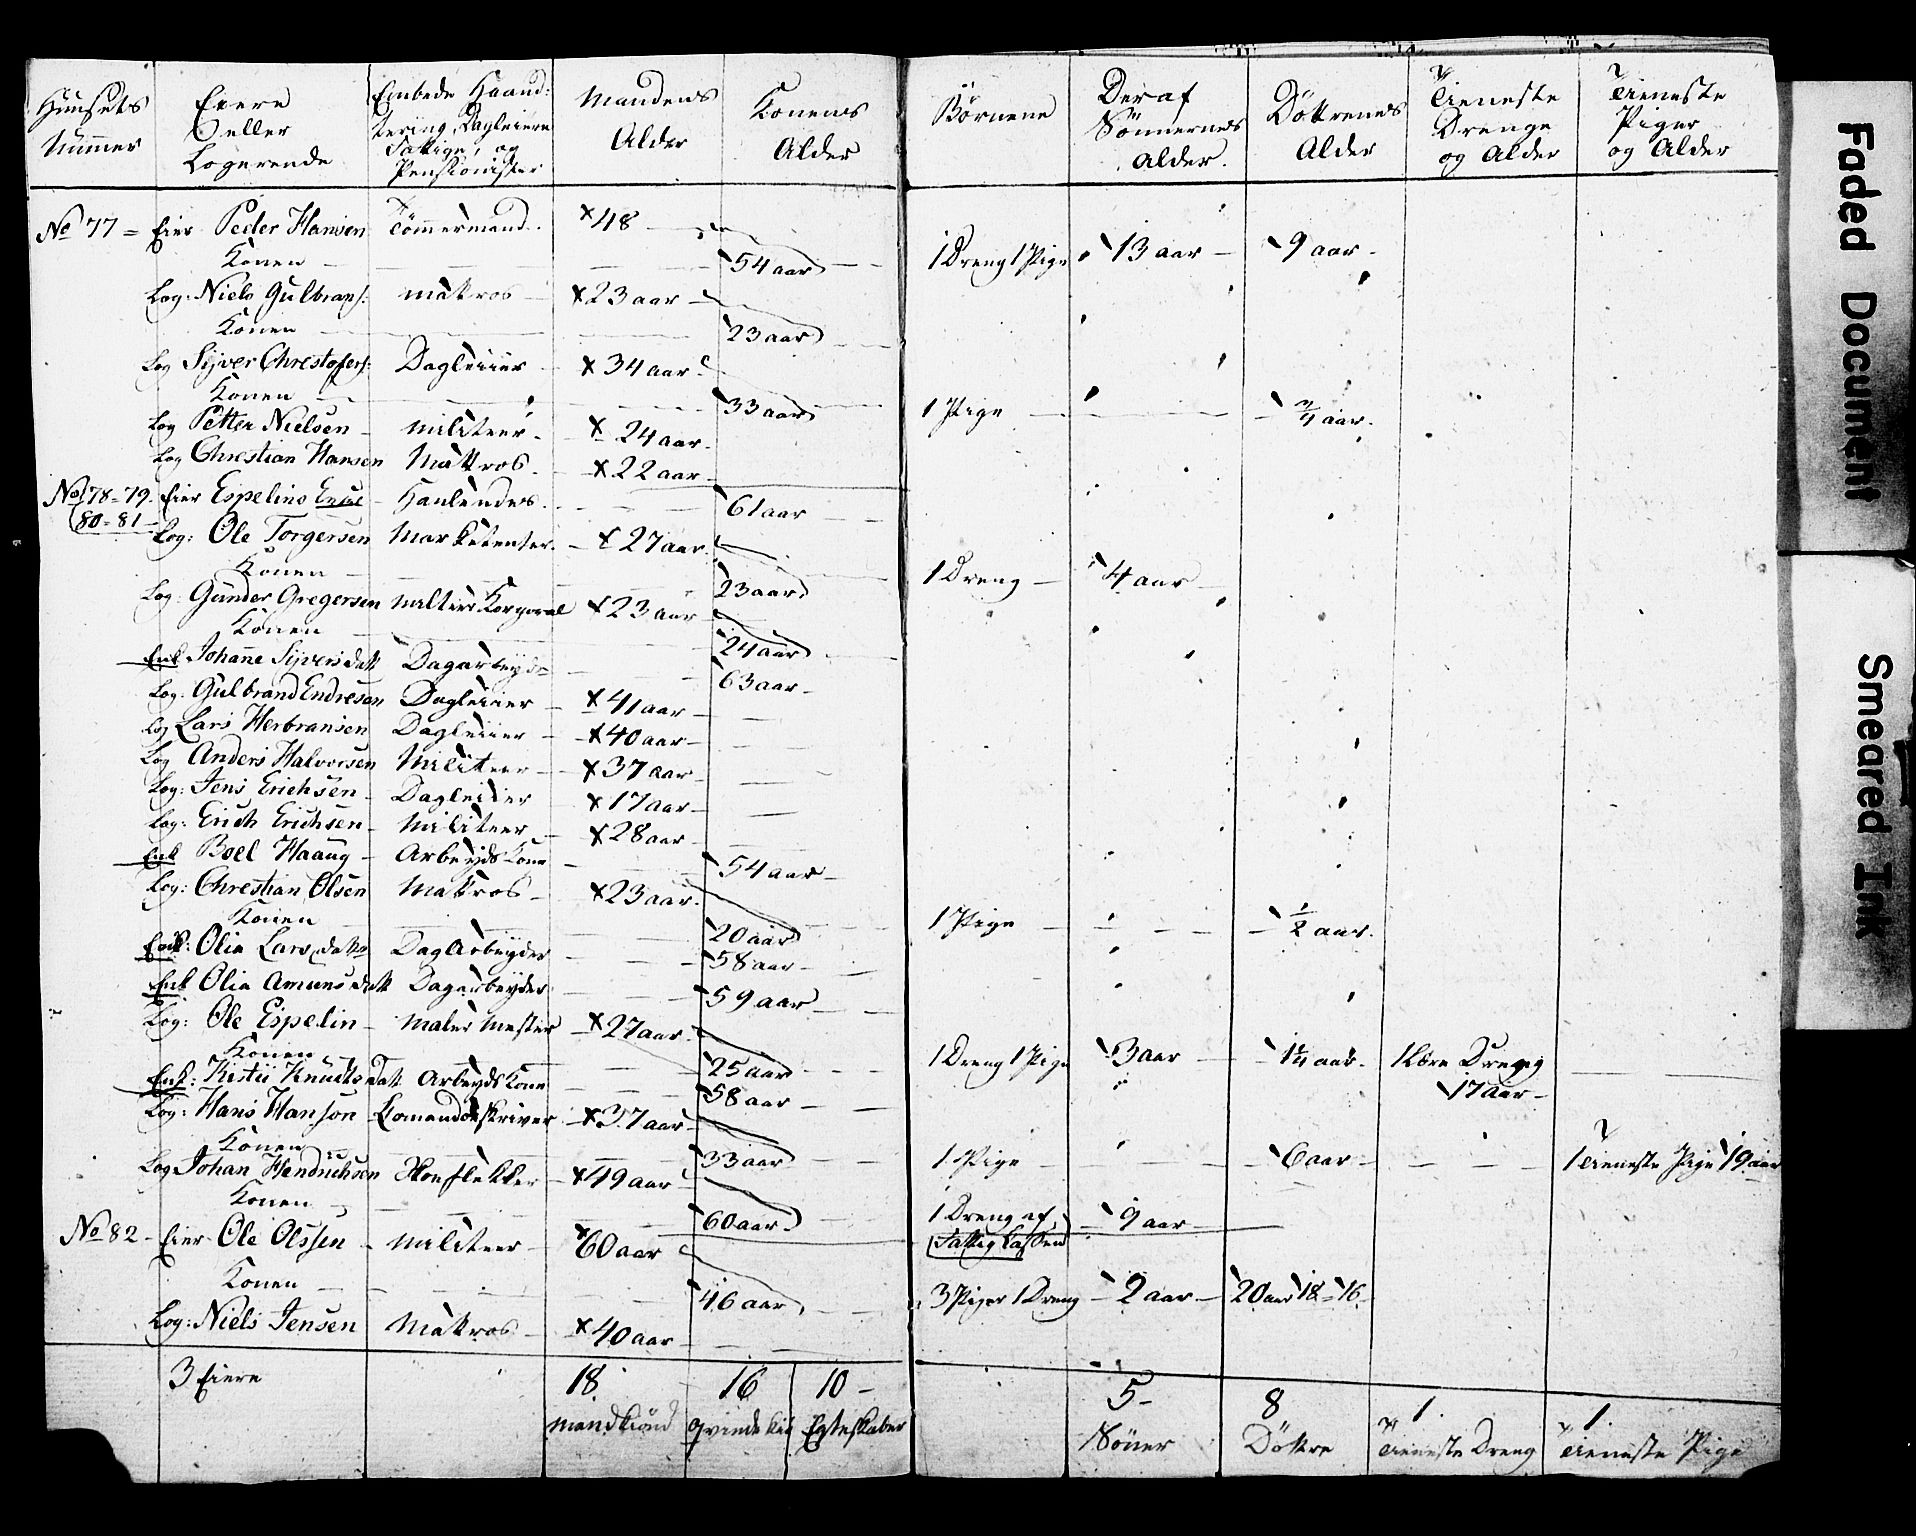 Huusets Nummer | Eiere eller Logerende | Embede Haand: tering, Dagleiere Fattige, og Pensionister | Mandens Alder | Konens Alder | Börnene | Deraf Sönnernes Alder. | Döttrenes Alder | Tieneste Drenge og Alder | Tieneste Piger og Alder
No 77 = Eier Peder Hansen Tömmermand. x 48
Konen 54 aar 1 Dreng 1 Pige 13 aar 9 aar
Log: Niels Gulbrans: matros x 23 aar
Konen 23 aar
Log Syver Chrestofers: Dagleiier x 34 aar
Konen 33 aar 1 Pige 3/4 aar.
Log Petter Nielsen militeer x 24 aar
Log Chrestian Hansen Mattros x 22 aar
No 78 = 79. Eier Espelins Enke Hanlendes 61 aar
80 = 81
Log: Ole Torgersen Marketenter. x 27 aar
Konen 23 aar 1 Dreng 4 aar
Log: Gunder Gregersen militeer Korporal x 23 aar
Konen 24 aar
Enk Johanne Syversdatt Dagarbeyde 63 aar
Log: Gulbrand Endresen Dagleiier x 41 aar
Log Lars Herbransen Dagleiier x 40 aar
Log Anders Halvorsen Militeer x 37 aar
Log: Jens Erichsen Dagleiier x 17 aar
Log: Erich Erichsen Militeer x 28 aar
Enk Boel Haaug Arbeyds Kone 54 aar
Log: Chrestian Olsen Matros x 23 aar
Konen 20 aar 1 Pige 1/2 aar.
Enk: Olia Larsdatter DagArbeyder 58 aar
Enk Olia Amunsdatt Dagarbeyder 59 aar
Log: Ole Espelin Maler Mester x 27 aar
Konen 25 aar 1 Dreng 1 Pige 3 aar 1 1/4 aar. 1 Lære Dreng
17 aar
Enk: Kistii Knudtsdatt Arbeyds Kone 58 aar
Log: Hans Hanson Comandörskriver x 37 aar
Konen 33 aar 1 Pige 6 aar 1 Tieneste Pige 19 aar
Log Johan Hendrichsen x 49 aar
Konen 60 aar 1 Dreng af 9 aar
Fattig Cassen
No 82 Eier Ole Olssen militeer x 60 aar
Konen 46 aar 3 Piger 1 Dreng 2 aar 20 aar 18 = 16
Log: Niels Jensen Matros x 40 aar
3 Eiere 18 16 10 5 8 1. 1.
mandkiönd qvindekiö Egteskaber Söner Döttre Tieneste Dreng Tieneste Pige
Faded Document
Smeared Ink